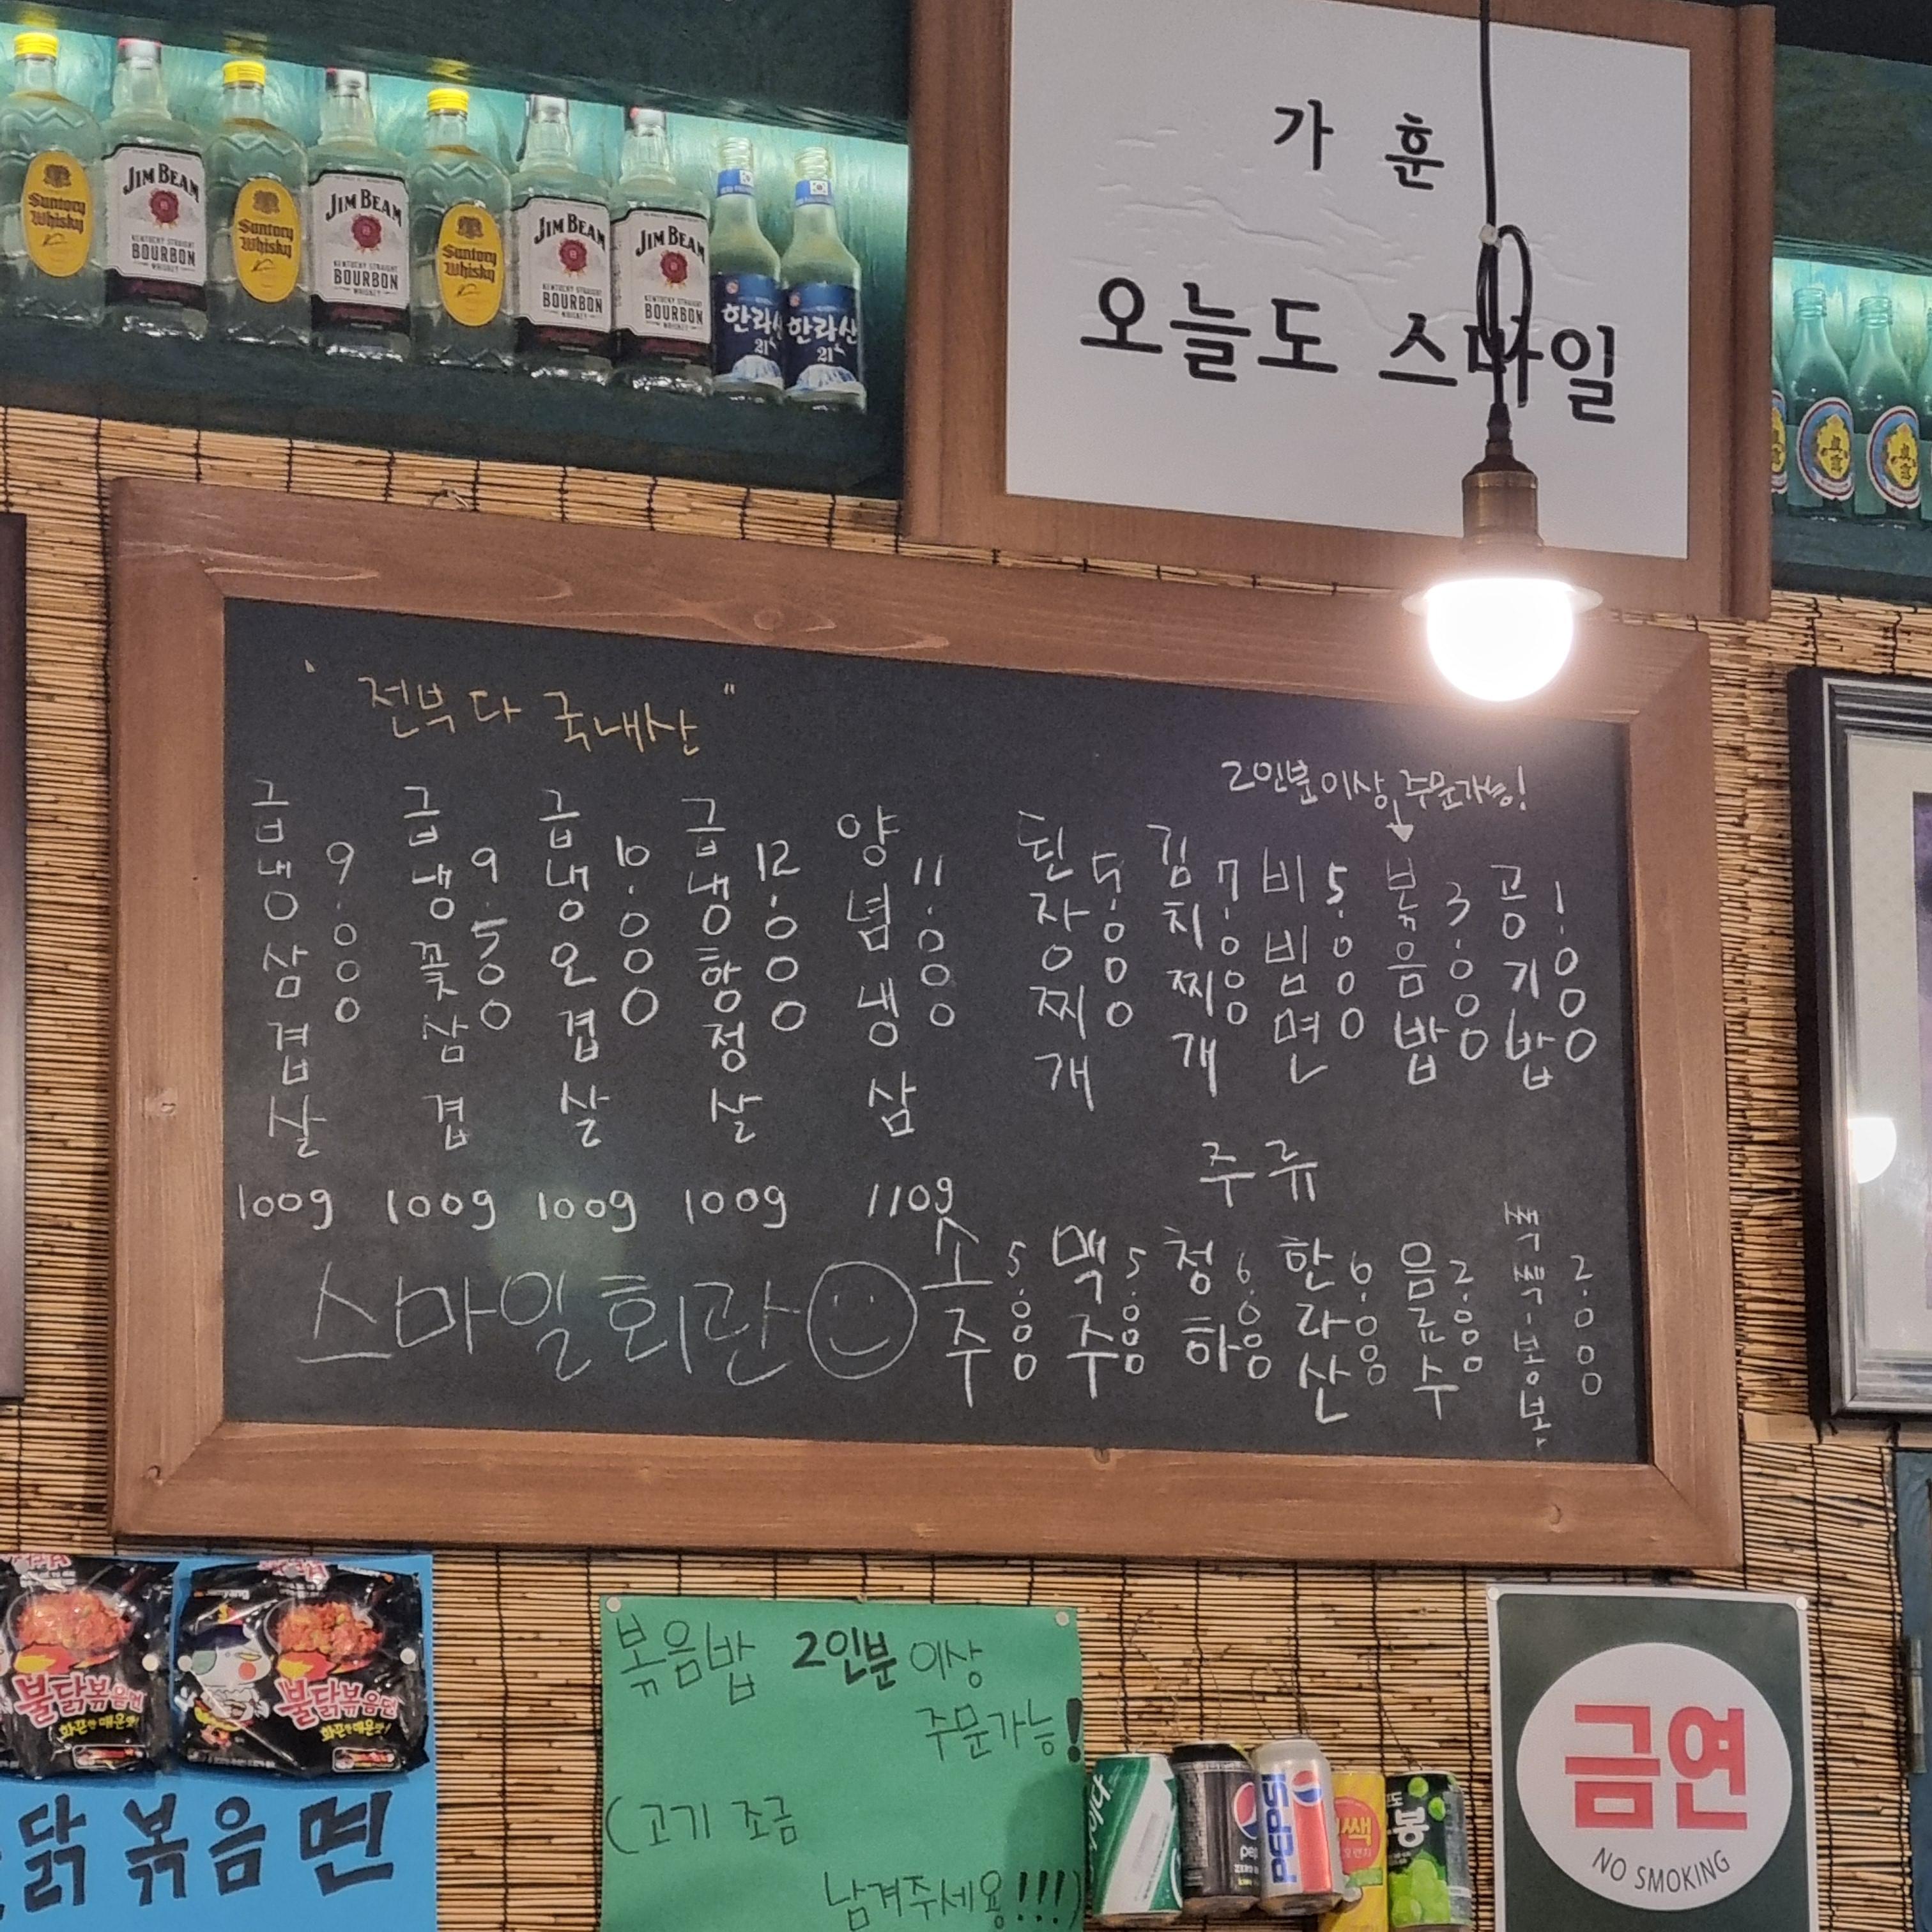 Suntory Whisky
JIM BEAM
KENTUCKY STRAIGHT
BOURBON
WHISKEY
Suntory Whisky
JIM BEAM
KENTUCKY STRAIGHT
BOURBON
WHISKEY
Suntory Whisky
JIM BEAM
KENTUCKY STRAIGHT
BOURBON
WHISKEY
JIM BEAM
KENTUCKY STRAIGHT
BOURBON
WHISKEY
한라산
21
한라산
21
가훈
오늘도 스마일
"전부 다 국내산"
2인분 이상 주문가능!
급냉삼겹살 9.000 100g
급냉꽃삼겹 9.500 100g
급냉오겹살 10.000 100g
급냉항정살 12.000 100g
양념냉삼 11.000 110g
된장찌개 5.000
김치찌개 7.000
비빔면 5.000
볶음밥 3.000
공기밥 1.000
주류
소주 5.000
맥주 5.000
청하 6.000
한라산 6.000
음료수 2.000
쌕쌕·봉봉 2.000
스마일회관
불닭볶음면
화끈한 매운맛!
불닭볶음면
화끈한 매운맛!
닭볶음면
볶음밥 2인분 이상
주문가능!
(고기 조금
남겨주세요!!!)
PEPSI
쌕
봉
금연
NO SMOKING